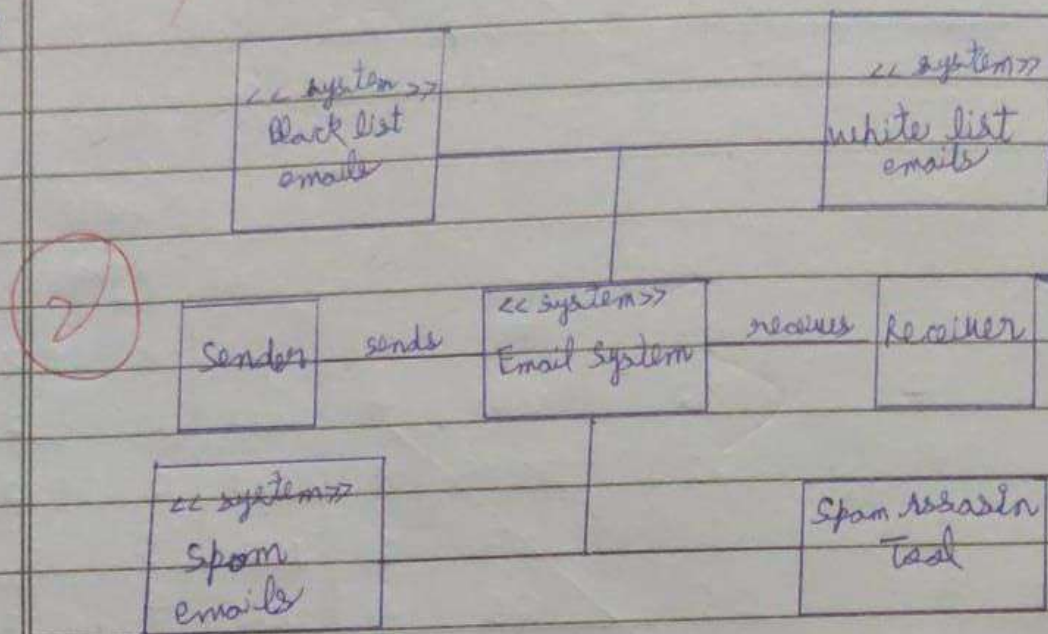 << system >>
Black list
emails
<< system >>
white list
emails
2
Sender
sends
<< system >>
Email System
receives
Receiver
<< system >>
Spam
emails
Spam Assasin
Tool